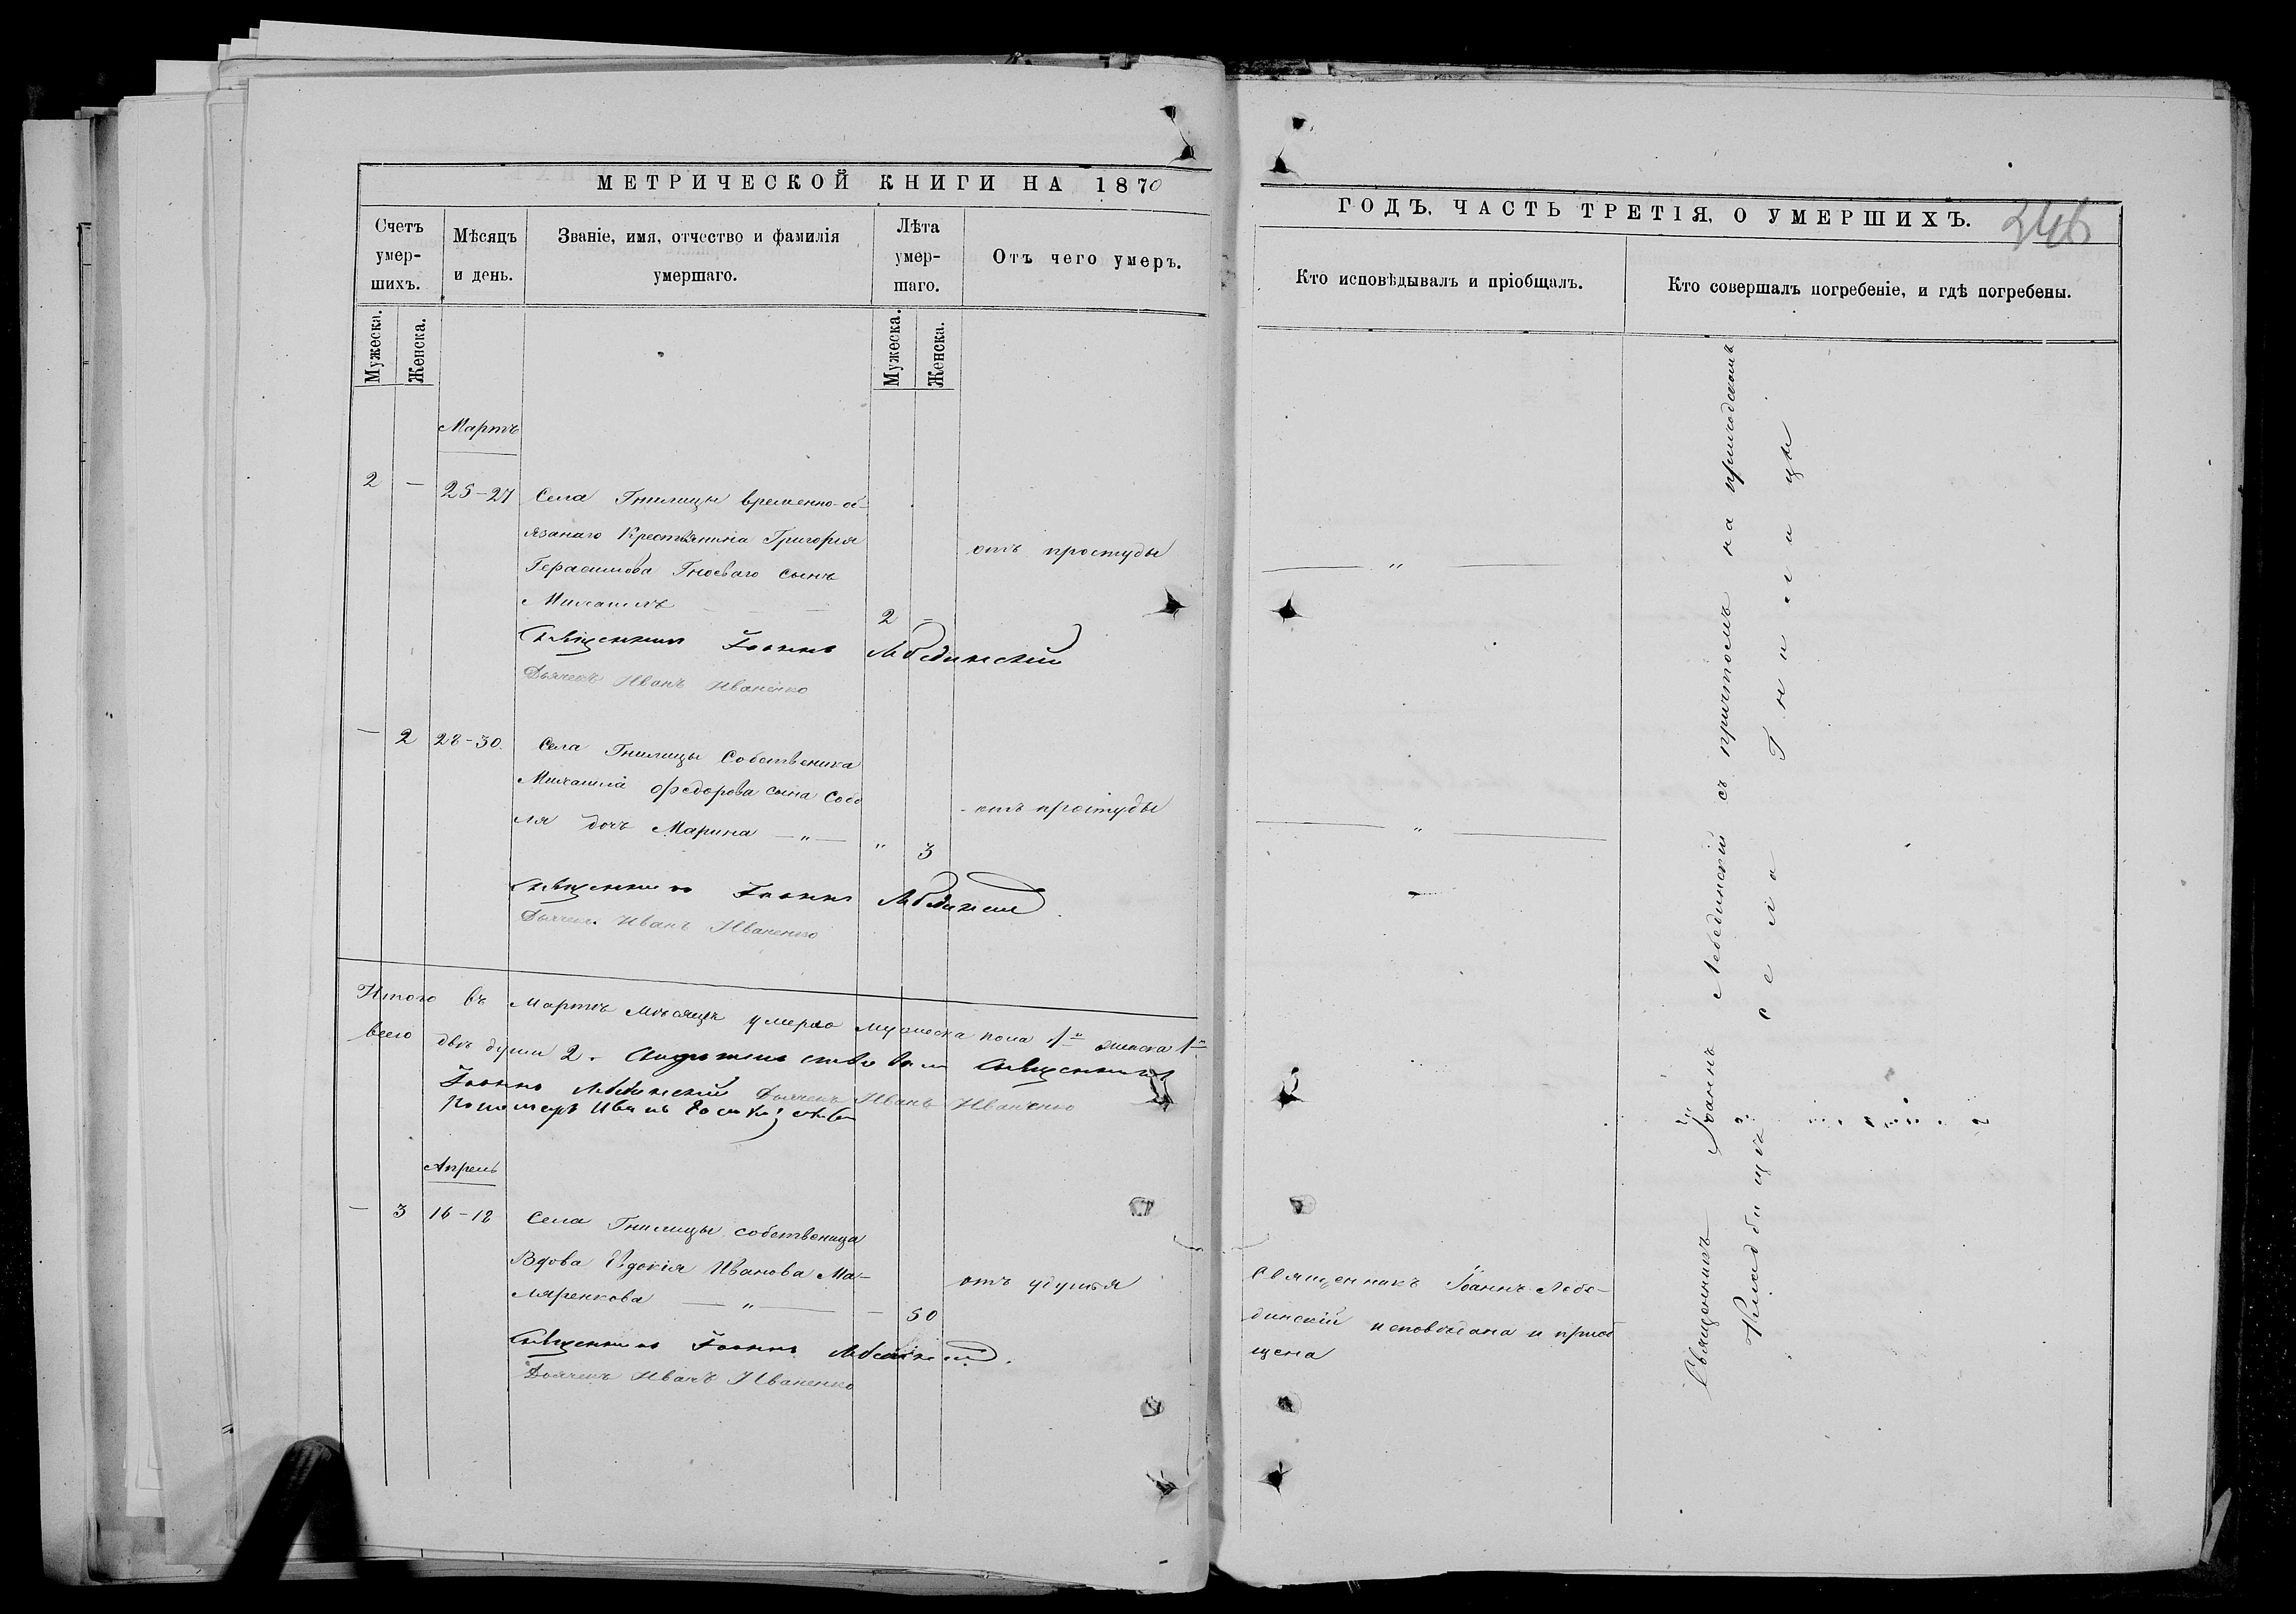 МЕТРИЧЕСКОЙ КНИГИ НА 1870
Счетъ умер-шихъ.
Мѣсяцъ и день.
Званіе, имя, отчество и фамилія умершаго.
Лѣта умер-шаго.
Отъ чего умеръ.
Мужеска.
Женска.
Мужеска.
Женска.
Мартъ
2 — 25-27 Села Гнилицы временно-об-
язанаго Крестьянина Григорія
отъ простуды
Герасимова Гноеваго сынъ
Михаилъ
2 -
Священникъ Іоаннъ Лебединскій
Дьячекъ Иванъ Иваненко
— 2 28-30. Села Гнилицы Собственика
Михаила Федорова сына Собо
отъ простуды
ля дочь Марина — „ —
„ 3
Священникъ Іоаннъ Лебединскій
Дьячекъ Иванъ Иваненко
Итого въ Мартѣ Мѣсяцѣ умерло мужеска пола 1 женска 1
всего двѣ души 2. Священникъ
Іоаннъ Лебединскій Дьячекъ Иванъ Иваненко
Пономарь Иванъ
Апрель
— 3 16-18 Села Гнилицы собственица
Вдова Евдокія Иванова Ма-
отъ удушья
ляренкова — „ — - 50
Священникъ Іоаннъ Лебединскій.
Дьячекъ Иванъ Иваненко
ГОДЪ. ЧАСТЬ ТРЕТІЯ, О УМЕРШИХЪ.
346
Кто исповѣдывалъ и пріобщалъ.
Кто совершалъ погребеніе, и гдѣ погребены.
— „ —
— „ —
Священникъ Іоаннъ Лебе-
динскій исповѣдана и приоб
щена
Священникъ Іоаннъ Лебединскій съ причтомъ на приходскомъ
Кладбищѣ села Гнилицы